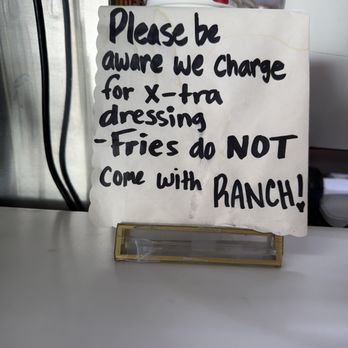 Please be
aware we charge
for x-tra
dressing
-Fries do NOT
come with RANCH!